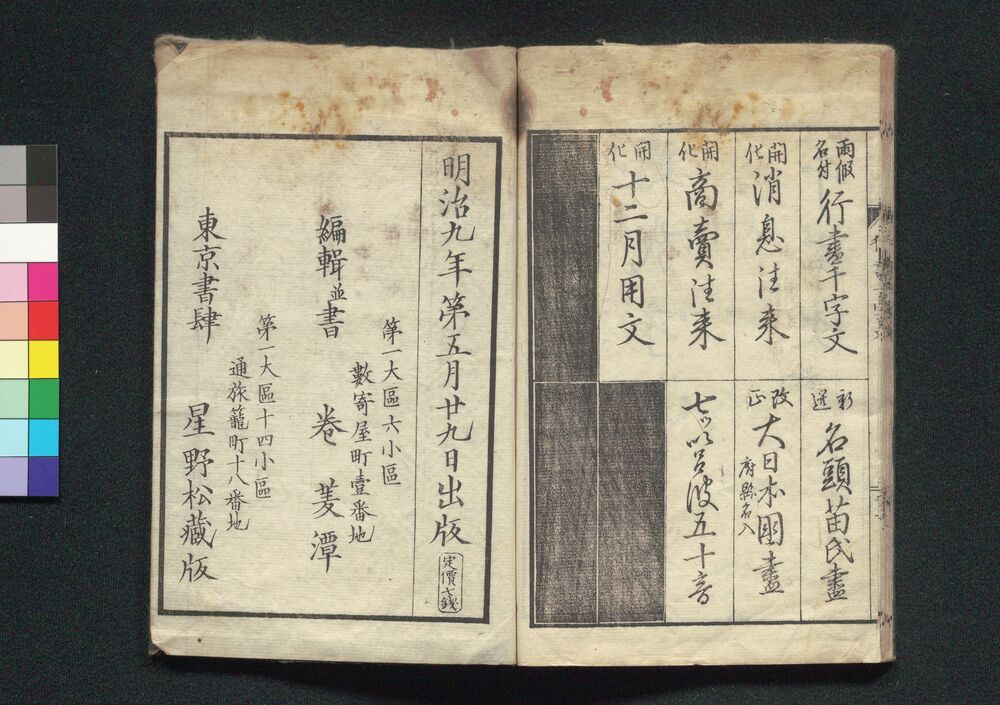 両假名付 行書千字文
開化 消息往来
開化 商賣往来
開化 十二月用文
新選 名頭苗氏盡
改正 大日本國盡 府縣名入
七ツいろは五十音
明治九年第五月廿九日出版
定價七錢
第一大區六小區
數寄屋町壹番地
編輯並書 巻菱潭
第一大區十四小區
通旅籠町十八番地
東京書肆 星野松藏版